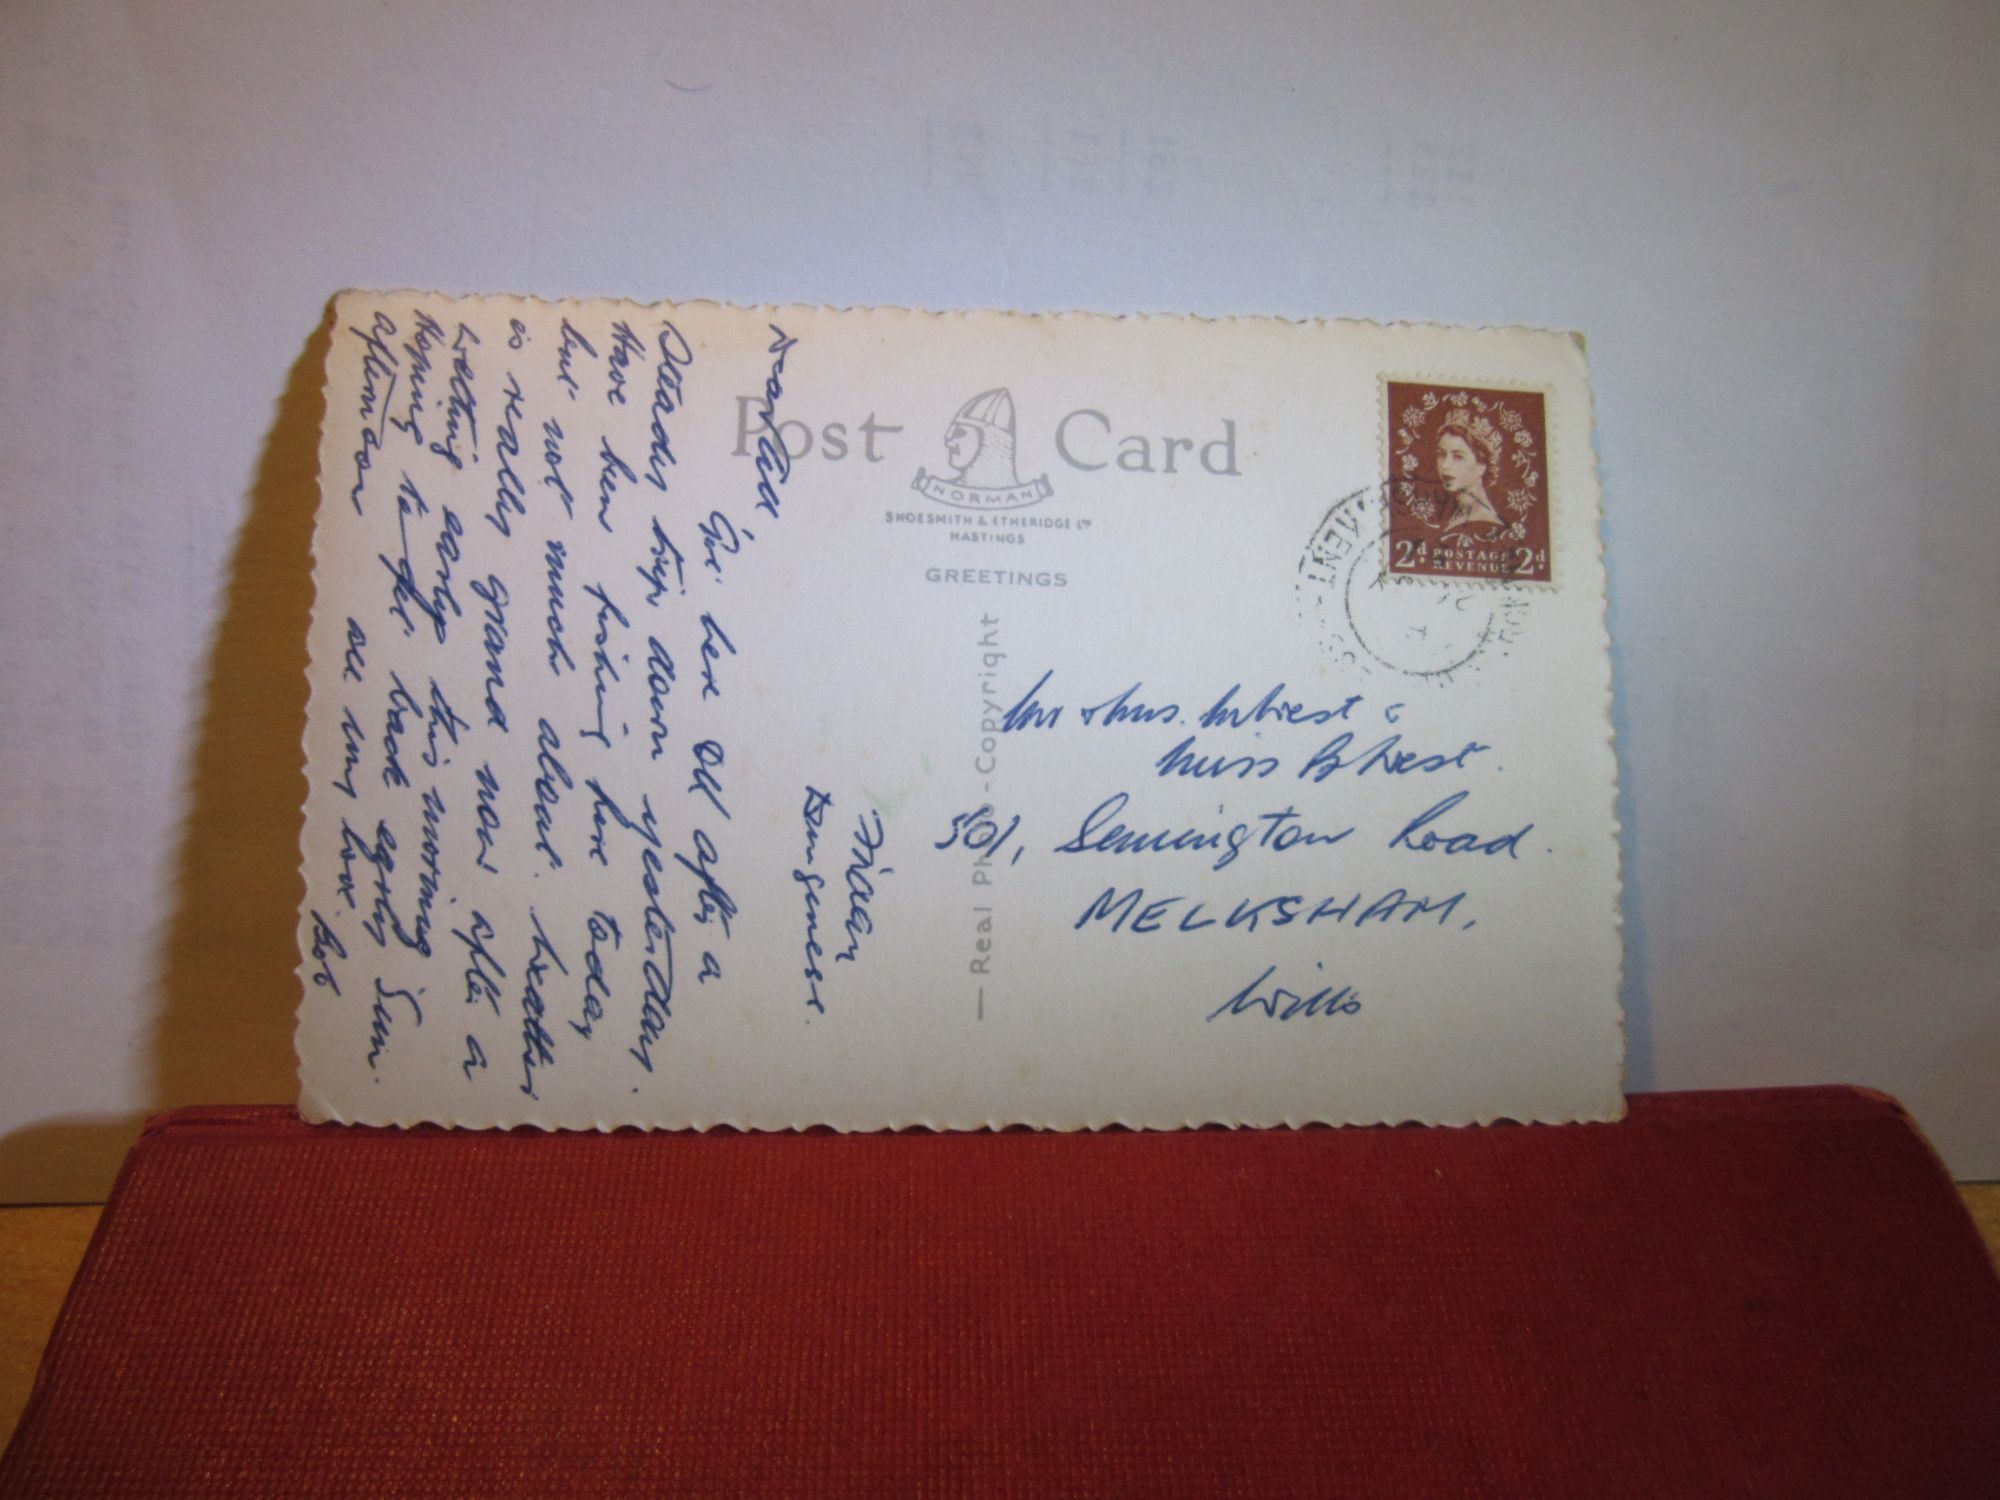 Post Card
NORMAN
SHOESMITH & ETHERIDGE LTD
HASTINGS
GREETINGS
— Real Photo - Copyright
2d POSTAGE 2d
REVENUE
KENT
Mr & Mrs. West &
Miss B West.
501, Semington Road.
MELKSHAM,
Wilts
Friday
Dungeness.
Dear All
Got here OK after a
steady trip down yesterday.
Have been fishing here today
but not much about. Weather
is really grand now after a
wetting early this morning
Hoping to get back early Sun.
afternoon all my love. Bob